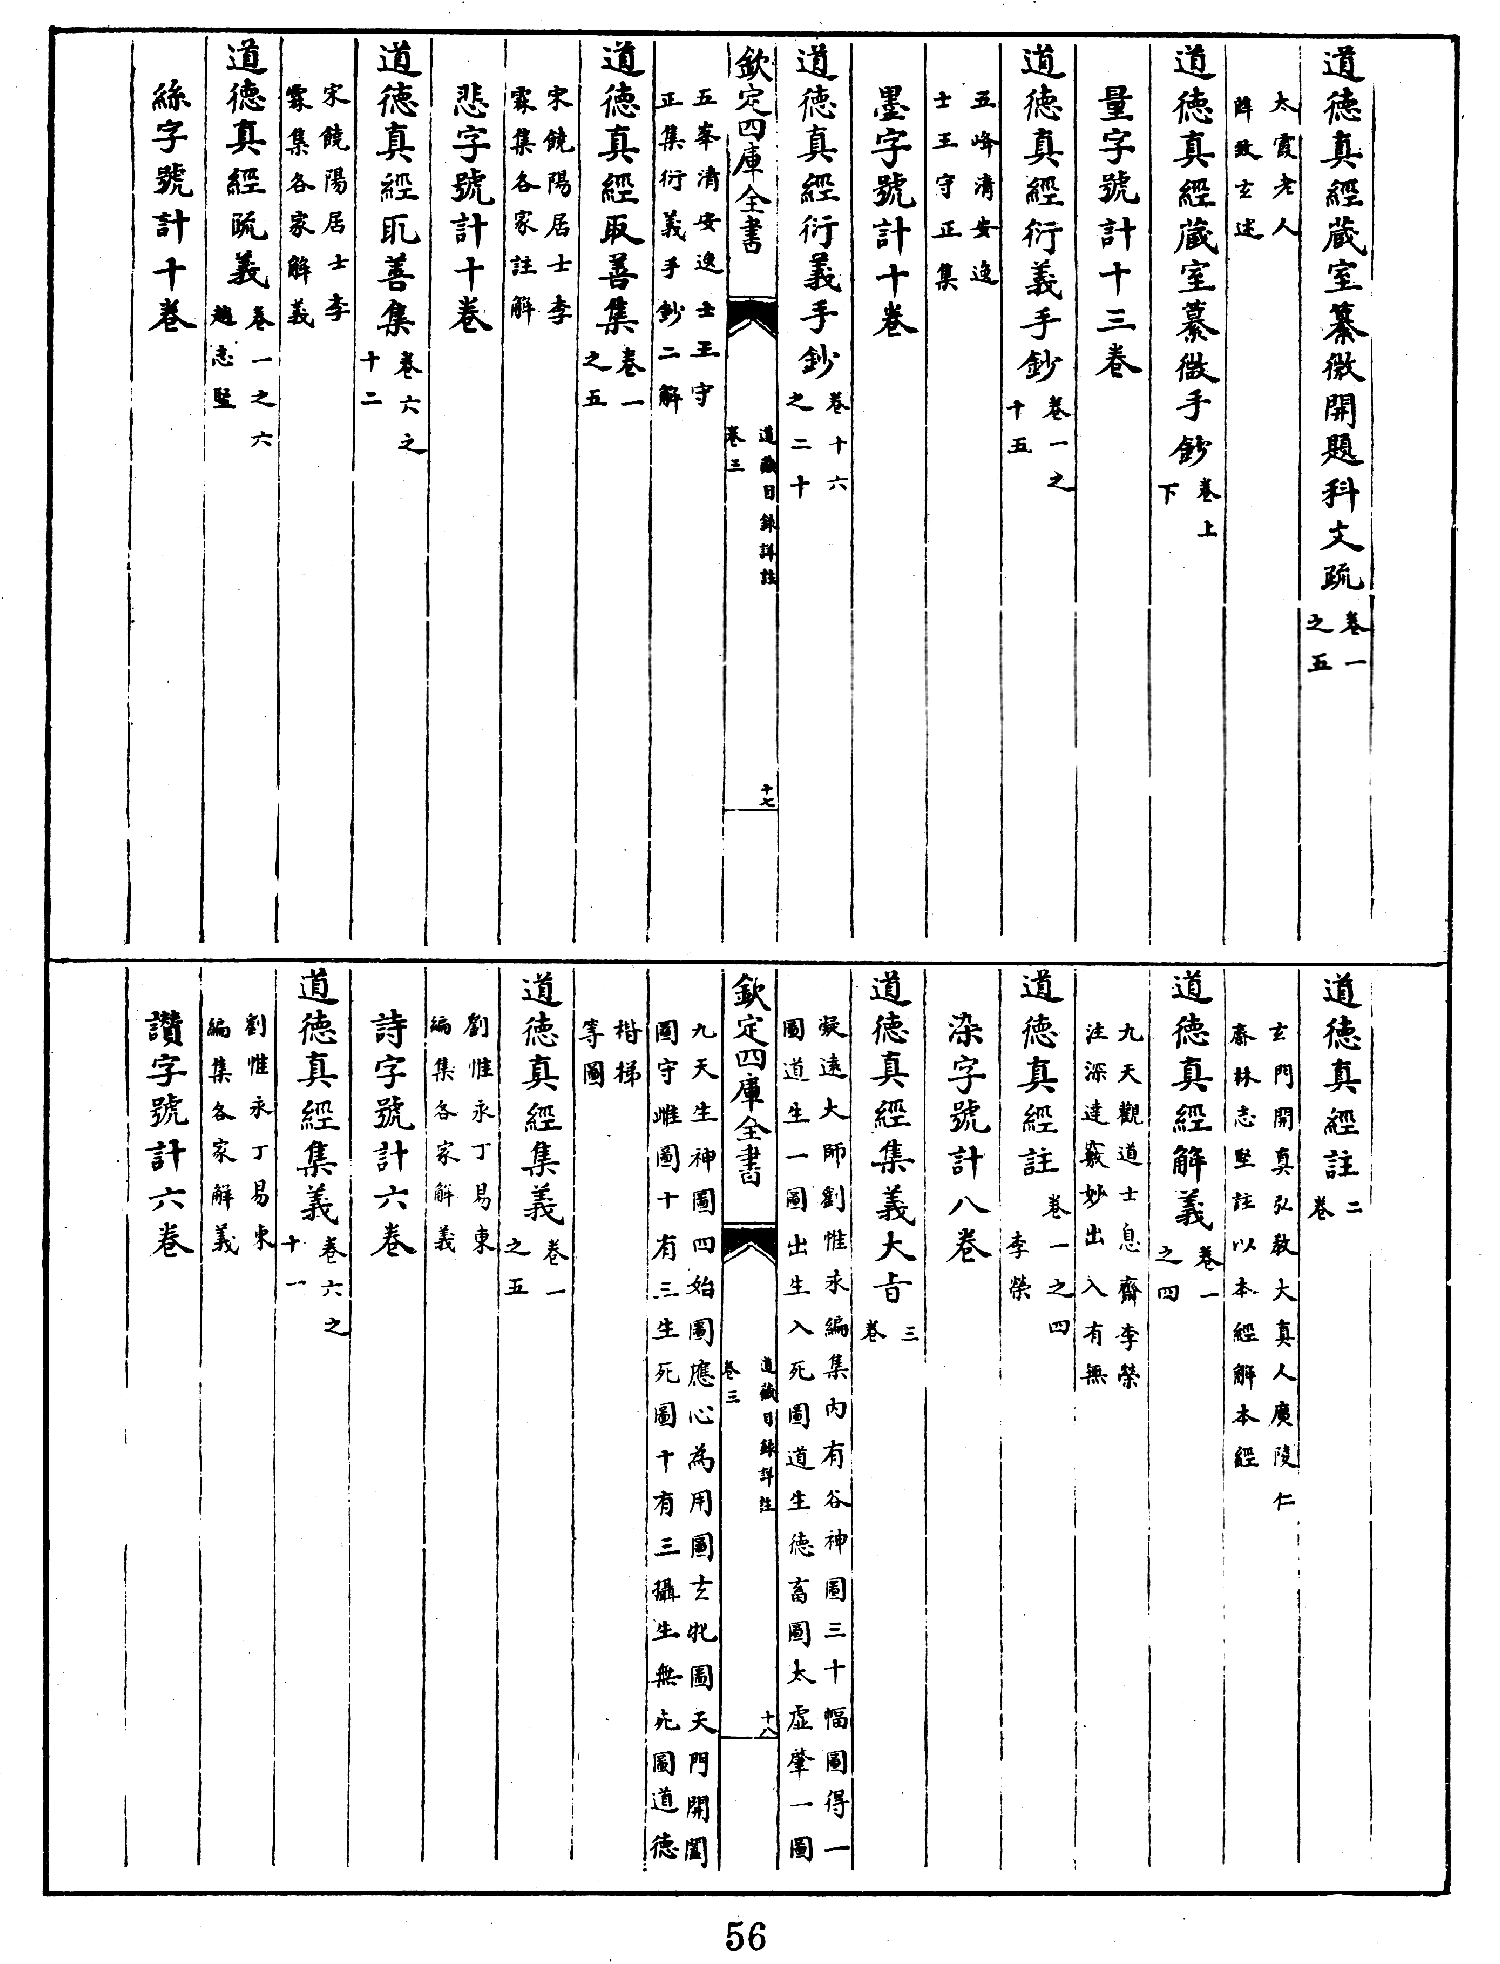 道德真經藏室纂微開題科文疏卷一之五
太霞老人
薛致玄述
道德真經藏室纂微手鈔卷上下
量字號計十三卷
道德真經衍義手鈔卷一之十五
五峰清安逸
士王守正集
墨字號計十卷
道德真經衍義手鈔卷十六之二十
欽定四庫全書
道藏目録詳註
卷三
十七
五峯清安逸士王守
正集衍義手鈔二解
道德真經取善集卷一之五
宋饒陽居士李
霖集各家註解
悲字號計十卷
道德真經取善集卷六之十二
宋饒陽居士李
霖集各家解義
道德真經疏義卷一之六
趙志堅
絲字號計十卷
道德真經註二卷
玄門開真弘教大真人廣陵仁
齋林志堅註以本經解本經
道德真經解義卷一之四
九天觀道士息齋李榮
注深達竅妙出入有無
道德真經註卷一之四
李榮
染字號計八卷
道德真經集義大旨三卷
凝遠大師劉惟永編集內有谷神圖三十幅圖得一
圖道生一圖出生入死圖道生德畜圖太虛肇一圖
欽定四庫全書
道藏目録詳註
卷三
十八
九天生神圖四始圖應心為用圖玄牝圖天門開闔
圖守雌圖十有三生死圖十有三攝生無死圖道德
楷梯
等圖
道德真經集義卷一之五
劉惟永丁易東
編集各家解義
詩字號計六卷
道德真經集義卷六之十一
劉惟永丁易東
編集各家解義
讚字號計六卷
56